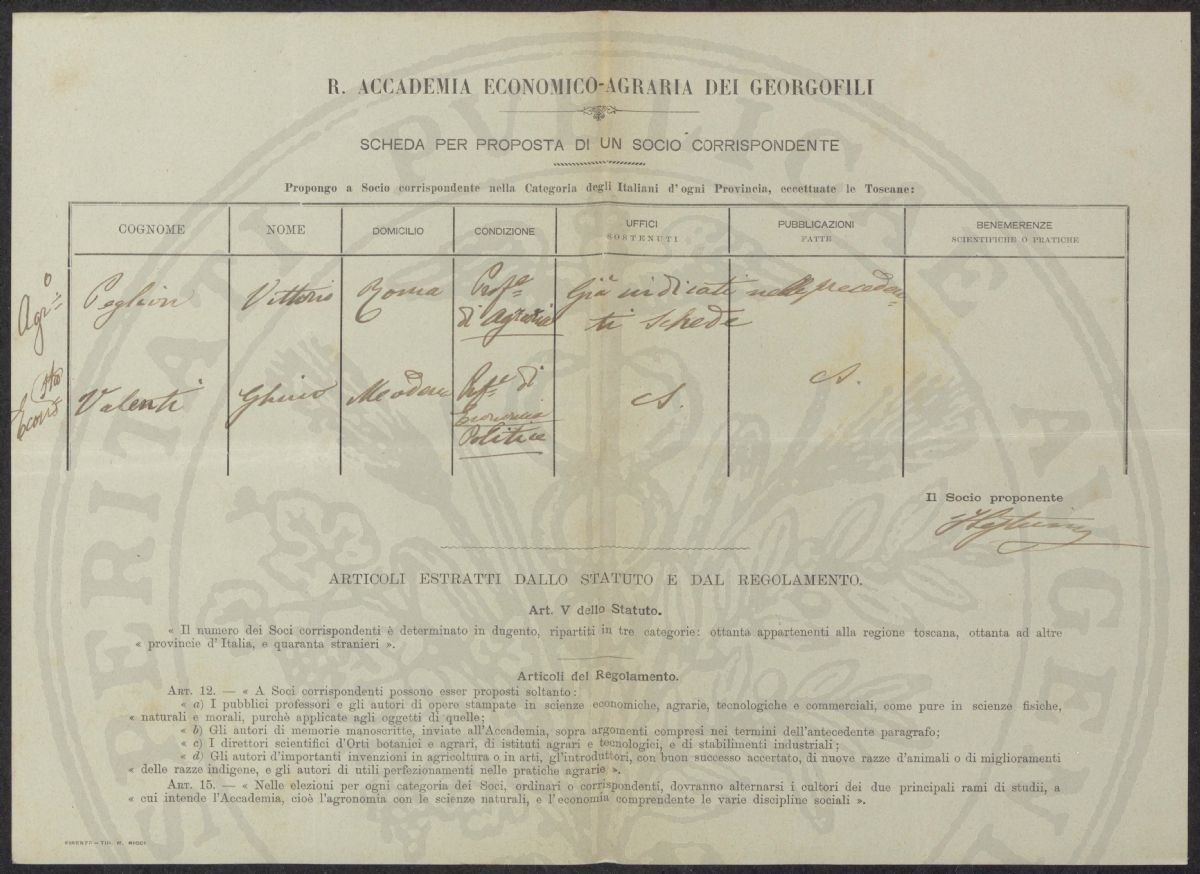 R. ACCADEMIA ECONOMICO-AGRARIA DEI GEORGOFILI
SCHEDA PER PROPOSTA DI UN SOCIO CORRISPONDENTE
Propongo a Socio corrispondente nella Categoria degli Italiani d'ogni Provincia, eccettuate le Toscane:
COGNOME NOME DOMICILIO CONDIZIONE UFFICI SOSTENUTI PUBBLICAZIONI FATTE BENEMERENZE SCIENTIFICHE O PRATICHE
Peglion Vittorio Roma Profe di Agraria Già indicati nelle preceden
ti Schede
Valenti Ghino Modena Profe di Economia Politica
Il Socio proponente
ARTICOLI ESTRATTI DALLO STATUTO E DAL REGOLAMENTO.
Art. V dello Statuto.
« Il numero dei Soci corrispondenti è determinato in dugento, ripartiti in tre categorie: ottanta appartenenti alla regione toscana, ottanta ad altre
« provincie d'Italia, e quaranta stranieri ».
Articoli del Regolamento.
ART. 12. — « A Soci corrispondenti possono esser proposti soltanto:
« a) I pubblici professori e gli autori di opere stampate in scienze economiche, agrarie, tecnologiche e commerciali, come pure in scienze fisiche,
« naturali e morali, purchè applicate agli oggetti di quelle;
« b) Gli autori di memorie manoscritte, inviate all'Accademia, sopra argomenti compresi nei termini dell'antecedente paragrafo;
« c) I direttori scientifici d'Orti botanici e agrari, di istituti agrari e tecnologici, e di stabilimenti industriali;
« d) Gli autori d'importanti invenzioni in agricoltura o in arti, gl'introduttori, con buon successo accertato, di nuove razze d'animali o di miglioramenti
« delle razze indigene, e gli autori di utili perfezionamenti nelle pratiche agrarie ».
ART. 15. — « Nelle elezioni per ogni categoria dei Soci, ordinari o corrispondenti, dovranno alternarsi i cultori dei due principali rami di studii, a
« cui intende l'Accademia, cioè l'agronomia con le scienze naturali, e l'economia comprendente le varie discipline sociali ».
FIRENZE — TIP. M. RICCI